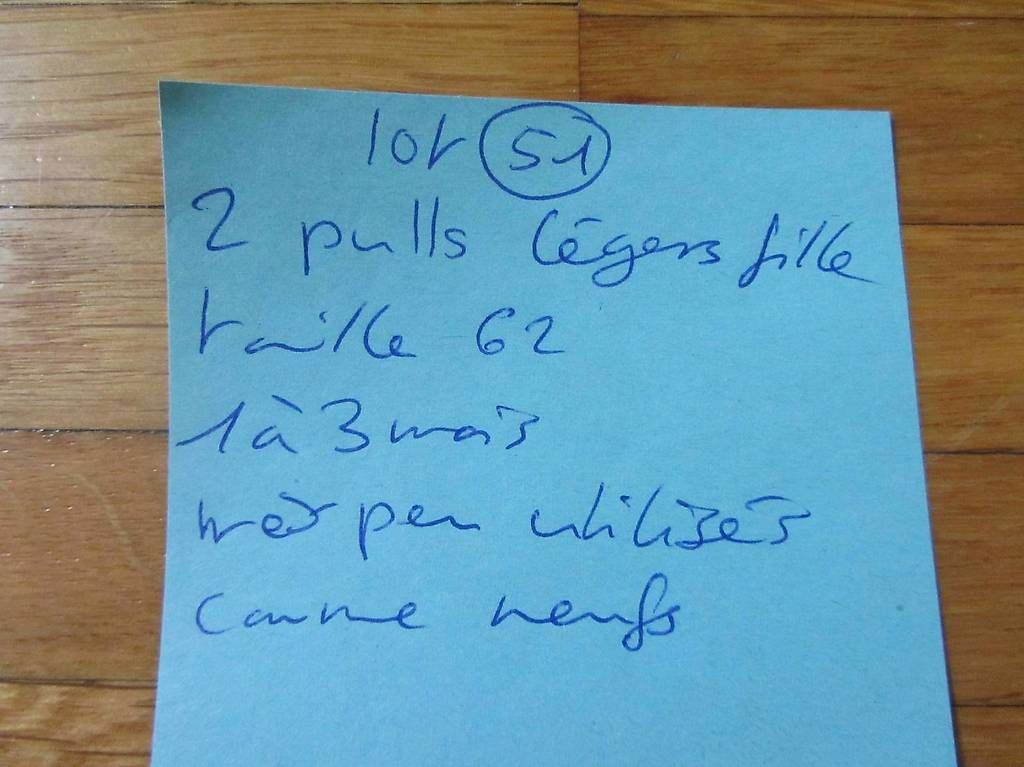 lot 51
2 pulls légers fille
taille 62
1 à 3 mois
très peu utilisés
comme neufs